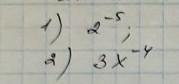 1) 2⁻⁵;
2) 3x⁻⁴